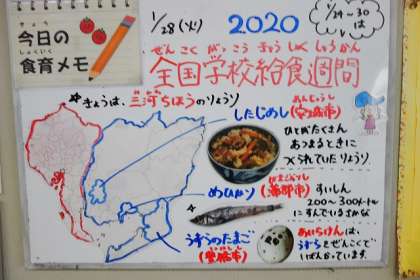 きょう
今日の
しょくいく
食育メモ
1/28(火) 2020
1/24~30
は
ぜんこくがっこうきゅうしょくしゅうかん
全国学校給食週間
きょうは、三河ちほうのりょうり
したじめし
(安城市)
あんじょうし
ひとがたくさん
あつまるときに
つくられていたりょうり
めひかり
(蒲郡市)
がまごおりし
すいしん
200~300メートル
にすんでいるさかな
うずらのたまご
(豊橋市)
とよはしし
あいちけんは、
うずらぜんこくで
いちばんかっています。